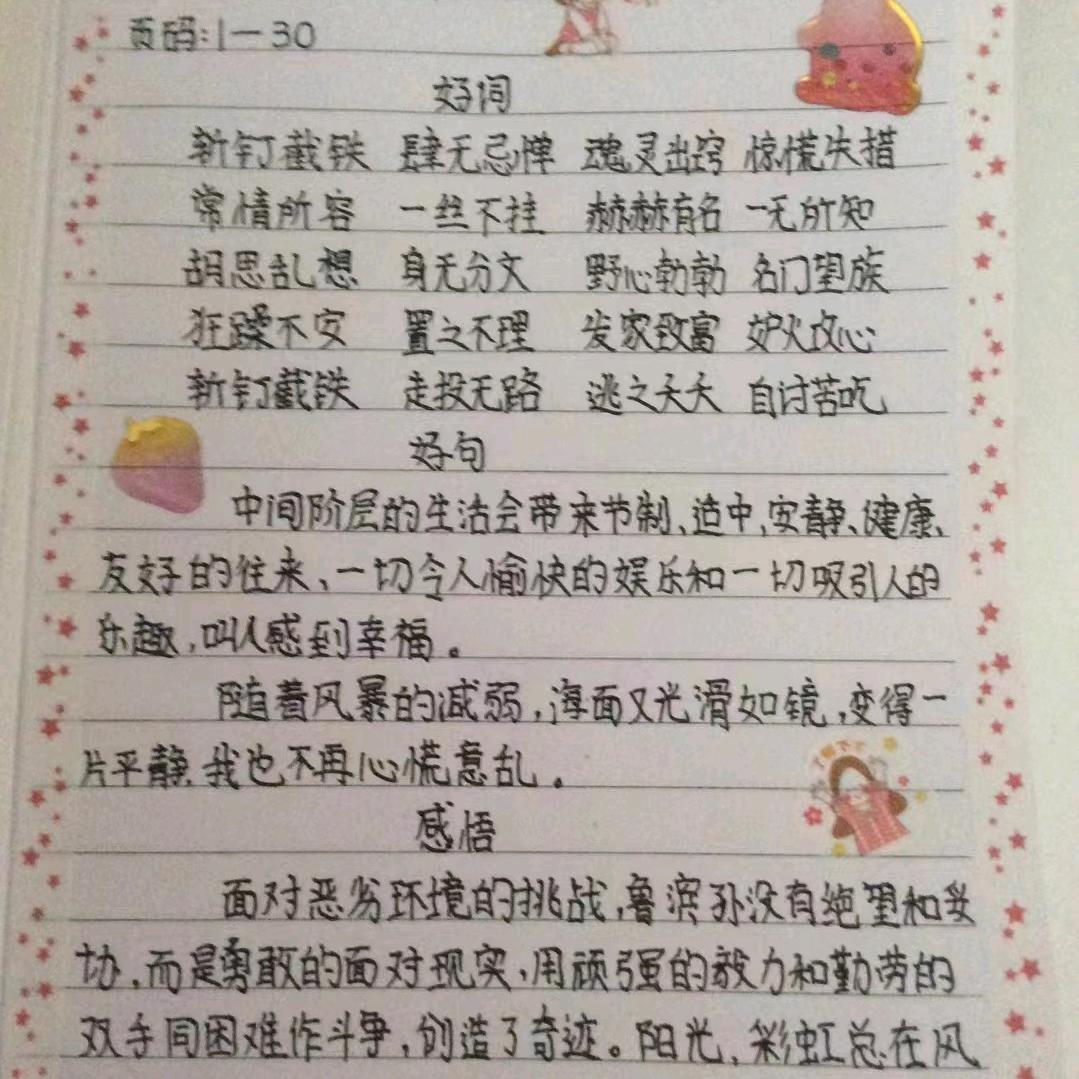 页码:1—30
好词
斩钉截铁 肆无忌惮 魂灵出窍 惊慌失措
常情所容 一丝不挂 赫赫有名 一无所知
胡思乱想 身无分文 野心勃勃 名门望族
狂躁不安 置之不理 发家致富 妒火攻心
斩钉截铁 走投无路 逃之夭夭 自讨苦吃
好句
中间阶层的生活会带来节制、适中、安静、健康、
友好的往来、一切令人愉快的娱乐和一切吸引人的
乐趣,叫人感到幸福。
随着风暴的减弱,海面又光滑如镜,变得一
片平静,我也不再心慌意乱。
感悟
面对恶劣环境的挑战,鲁滨孙没有绝望和妥
协,而是勇敢的面对现实,用顽强的毅力和勤劳的
双手同困难作斗争,创造了奇迹。阳光,彩虹总在风